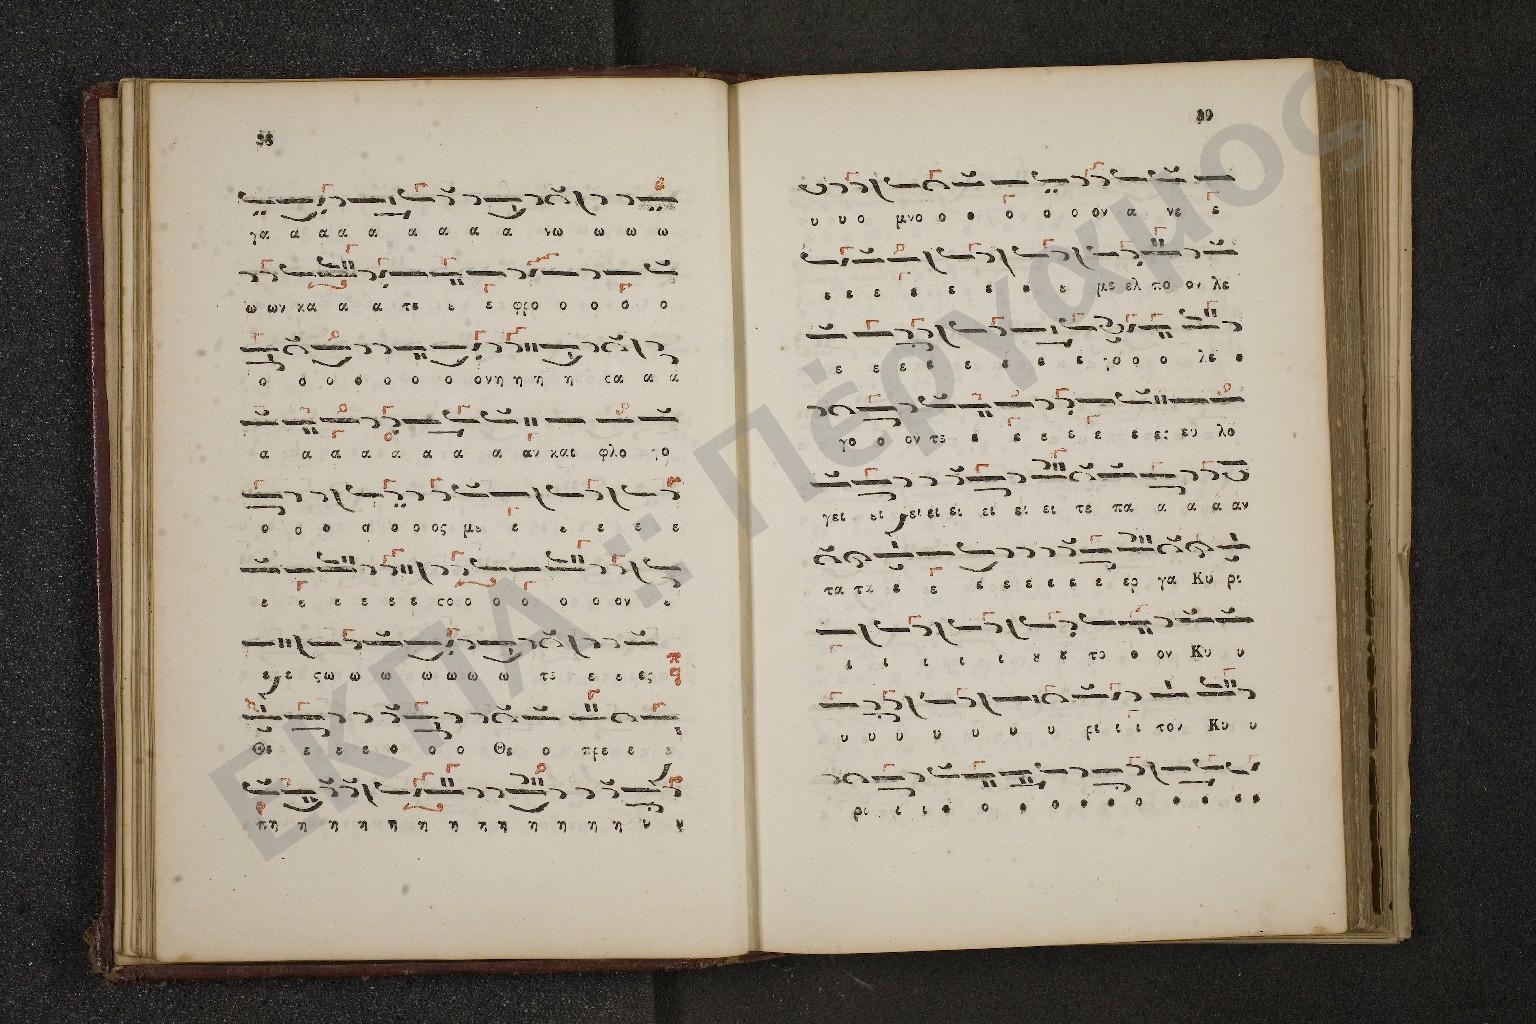 γα α α α α α α α α νω ω ω ω
ω ων κα α α τε ε ε φρο ο ο ο ο
ο ο ο ο ο ο ο ονη η η η σα α α
α α α α α α α α αν και φλο γο
ο ο ο ο ο ο ος με ε ε ε ε ε
ε ε ε ε ε ε σο ο ο ο ο ο ον ε
ε ε ςω ω ω ω ω ω ω τε ε ε ες
Θε ε ε ε ο ο ο Θε ο πρε ε ε
πη η η η η η η η η η η η
39
υ υ ο μνο ο ο ο ο ο ον α νε ε
ε ε ε ε ε ε ε ε με ελ πο ον λε
ε ε ε ε ε ε ε ε γο ο ο λε ε
γο ο ον τε ε ε ε ε ε ε ες ευ λο
γει ει ει ει ει ει ει ει τε πα α α α αν
τα τα ε ε ε ε ε ε ε ερ γα Κυ ρι
ι ι ι ι ι ου ου το ο ον Κυ υ
υ υ υ υ υ υ υ ρι ι ι τον Κυ υ
ρι ι ι ο ο ο ο ο ο ο ο
ΕΚΠΑ :: Πέργαμος